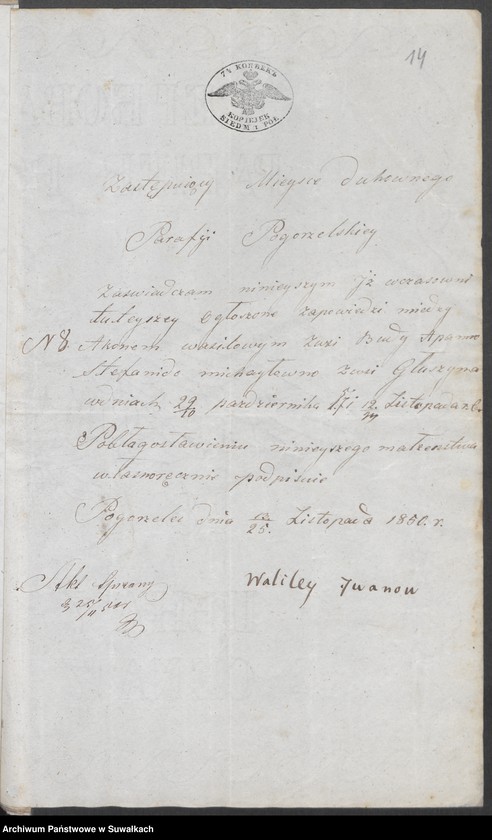 14
7½ КОПѢЕКЪ
KOPIEJEK
SIEDM i PÓŁ
Zastępuiący Mieysce duhownego
Parafji Pogorzelskiey
Zaswiadczam ninieyszym Jż wczasowni
tuteyszey Ogłoszone zapowiedzi miedzy
N 8 Axonem wasilowym zwsi Budy Apanno
Stefanido michayłewno zwsi Głuszyna
wdniach 29/10 pazdziernika Listopada r. b.
Pobłagosławieniu ninieyszego małzenstwa
własnoręcznie podpisuie
Pogorzelec dnia /25. Listopada 1850. r.
Akt Spisany
Waliley Jwanow
Archiwum Państwowe w Suwałkach